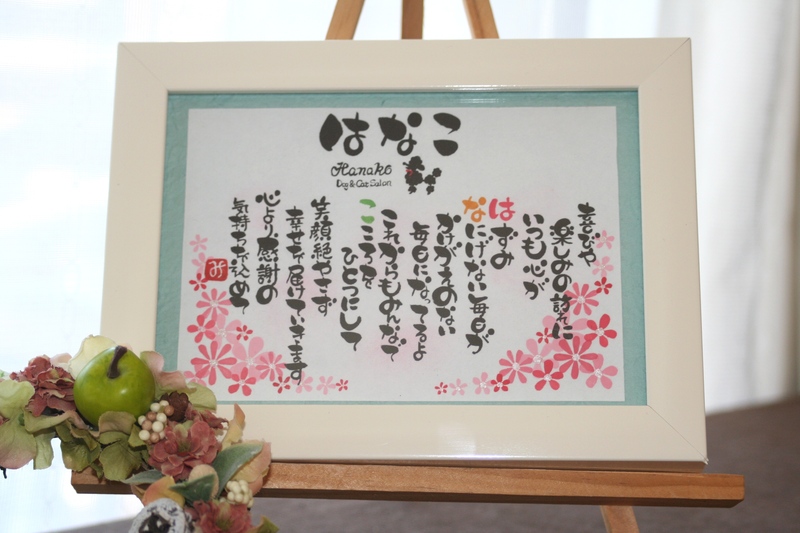 はなこ
Hanako
Dog & Cat Salon
喜びや
楽しみの訪れに
いつも心が
はずみ
なにげない毎日が
かけがえのない
毎日になってるよ
これからもみんなで
こころを
ひとつにして
笑顔絶やさず
幸せを届けていきます
心より感謝の
気持ちを込めて
み